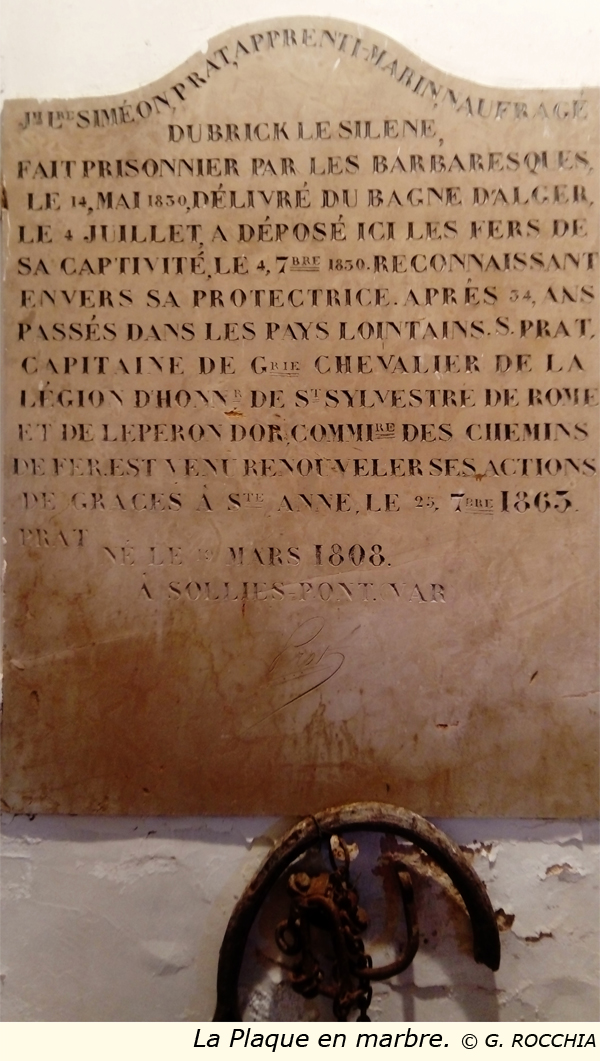 JH LRE SIMÉON, PRAT, APPRENTI-MARIN, NAUFRAGÉ
DU BRICK LE SILENE,
FAIT PRISONNIER PAR LES BARBARESQUES,
LE 14, MAI 1830, DÉLIVRÉ DU BAGNE D'ALGER,
LE 4 JUILLET, A DÉPOSÉ ICI LES FERS DE
SA CAPTIVITÉ, LE 4, 7BRE 1830. RECONNAISSANT
ENVERS SA PROTECTRICE. APRÉS 34, ANS
PASSÉS DANS LES PAYS LOINTAINS. S. PRAT,
CAPITAINE DE GRIE CHEVALIER DE LA
LÉGION D'HONNR DE ST SYLVESTRE DE ROME
ET DE LEPERON DOR, COMMIRE DES CHEMINS
DE FER, EST VENU RENOUVELER SES ACTIONS
DE GRACES À STE ANNE, LE 25, 7BRE 1863.
PRAT
NÉ LE MARS 1808.
À SOLLIES-PONT. VAR
Prat
La Plaque en marbre. © G. ROCCHIA